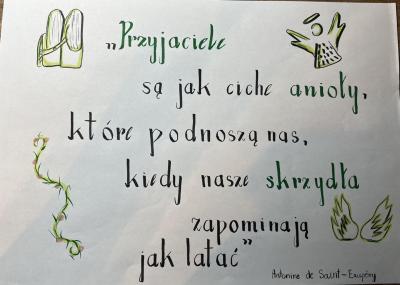 „Przyjaciele
są jak ciche anioły,
które podnoszą nas,
kiedy nasze skrzydła
zapominają
jak latać”
Antonine de Saint-Exupéry